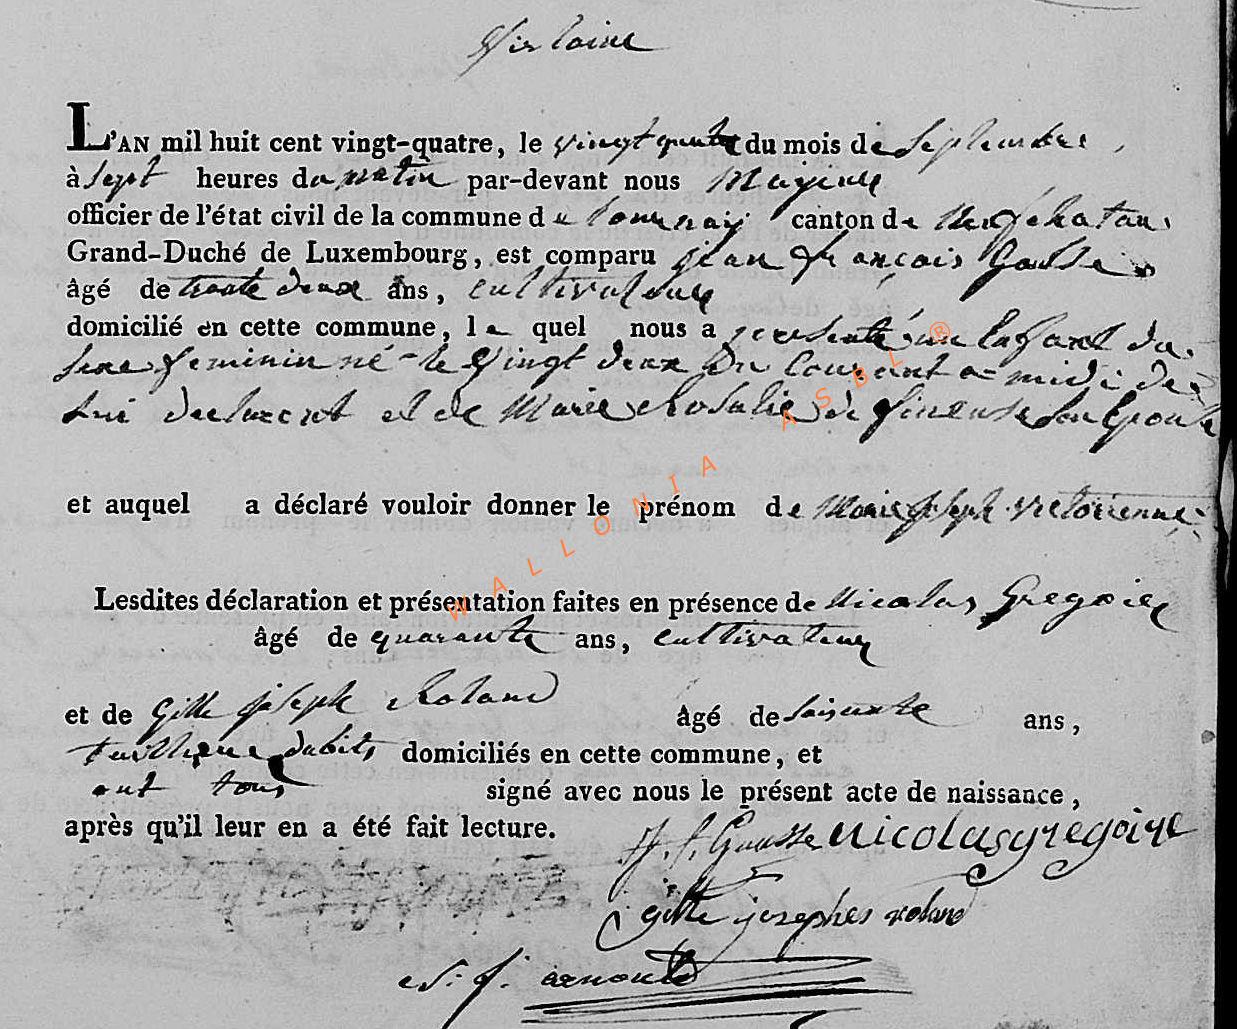 Verlaine
L'AN mil huit cent vingt-quatre, le vingt quatre du mois de Septembre,
à sept heures du matin par-devant nous Mayeur
officier de l'état civil de la commune de tournay canton de Neufchatau
Grand-Duché de Luxembourg, est comparu jean françois Gousse
âgé de trente deux ans, cultivateur
domicilié en cette commune, le quel nous a presenté un Enfant du
sexe feminin né le vingt deux du Courant a midi de
lui declarent et de Marie Rosalie de son Epouse
et auquel a déclaré vouloir donner le prénom de Marie joseph victorienne
Lesdites déclaration et présentation faites en présence de Nicolas Gregoire
âgé de quarante ans, cultivateur
et de Gille joseph Roland âgé de soisente ans,
domiciliés en cette commune, et
ont tous signé avec nous le présent acte de naissance,
après qu'il leur en a été fait lecture.
J. f. Gousse nicolas gregoire
gille josephes roland
j. arnould
WALLONIA ASBL ®